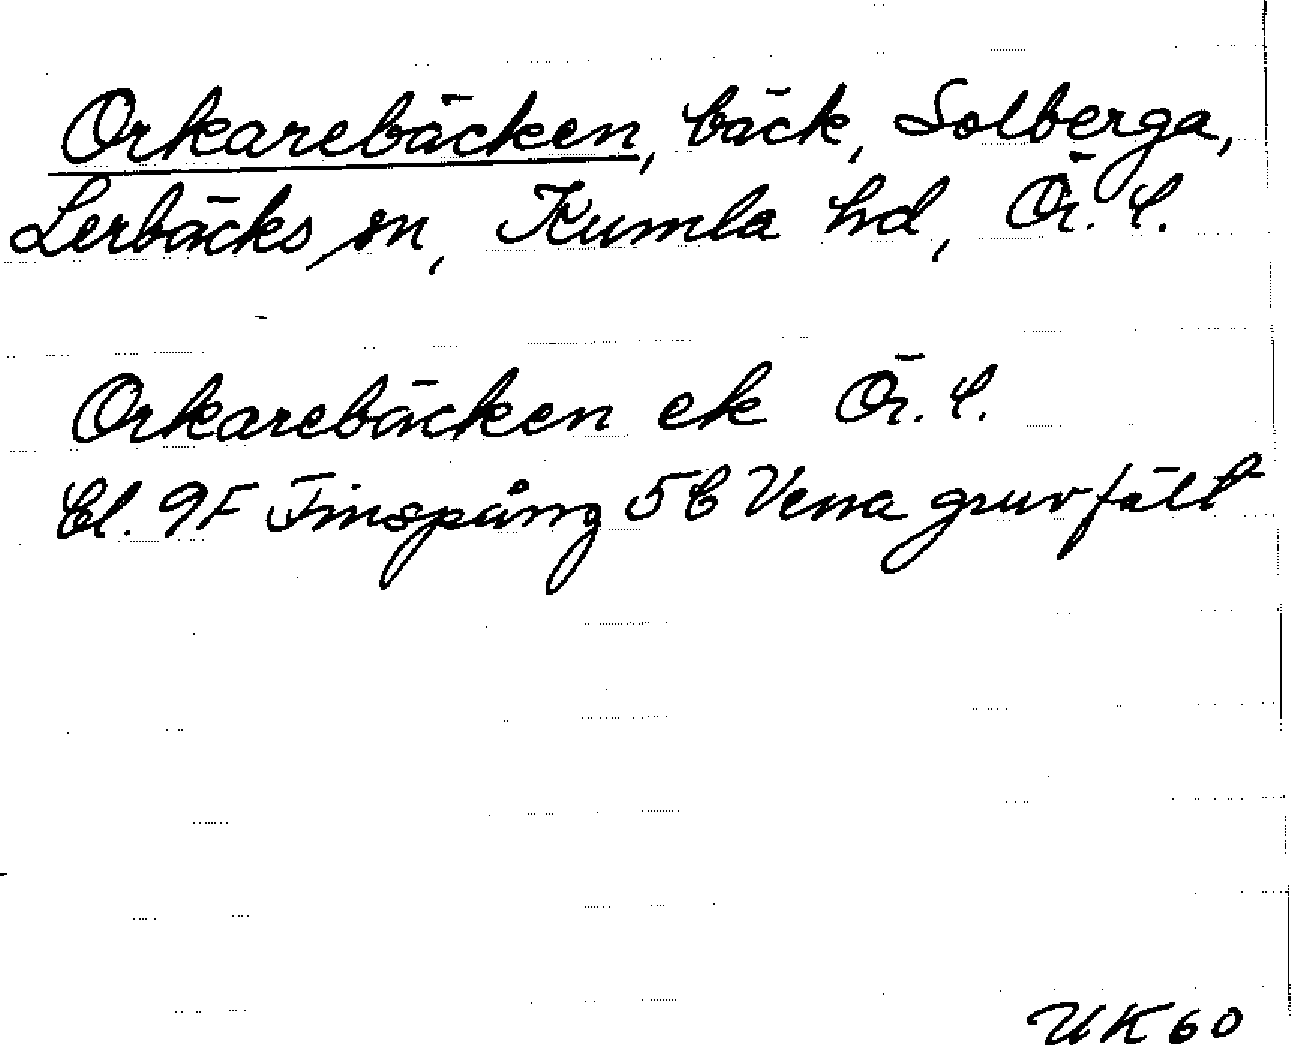 Orkarebäcken, bäck, Solberga,
Lerbäcks sn, Kumla hd, Ör. l.
Orkarebäcken ek Ör. l.
bl. 9F Finspång 5b Vena gruvfält
UK60